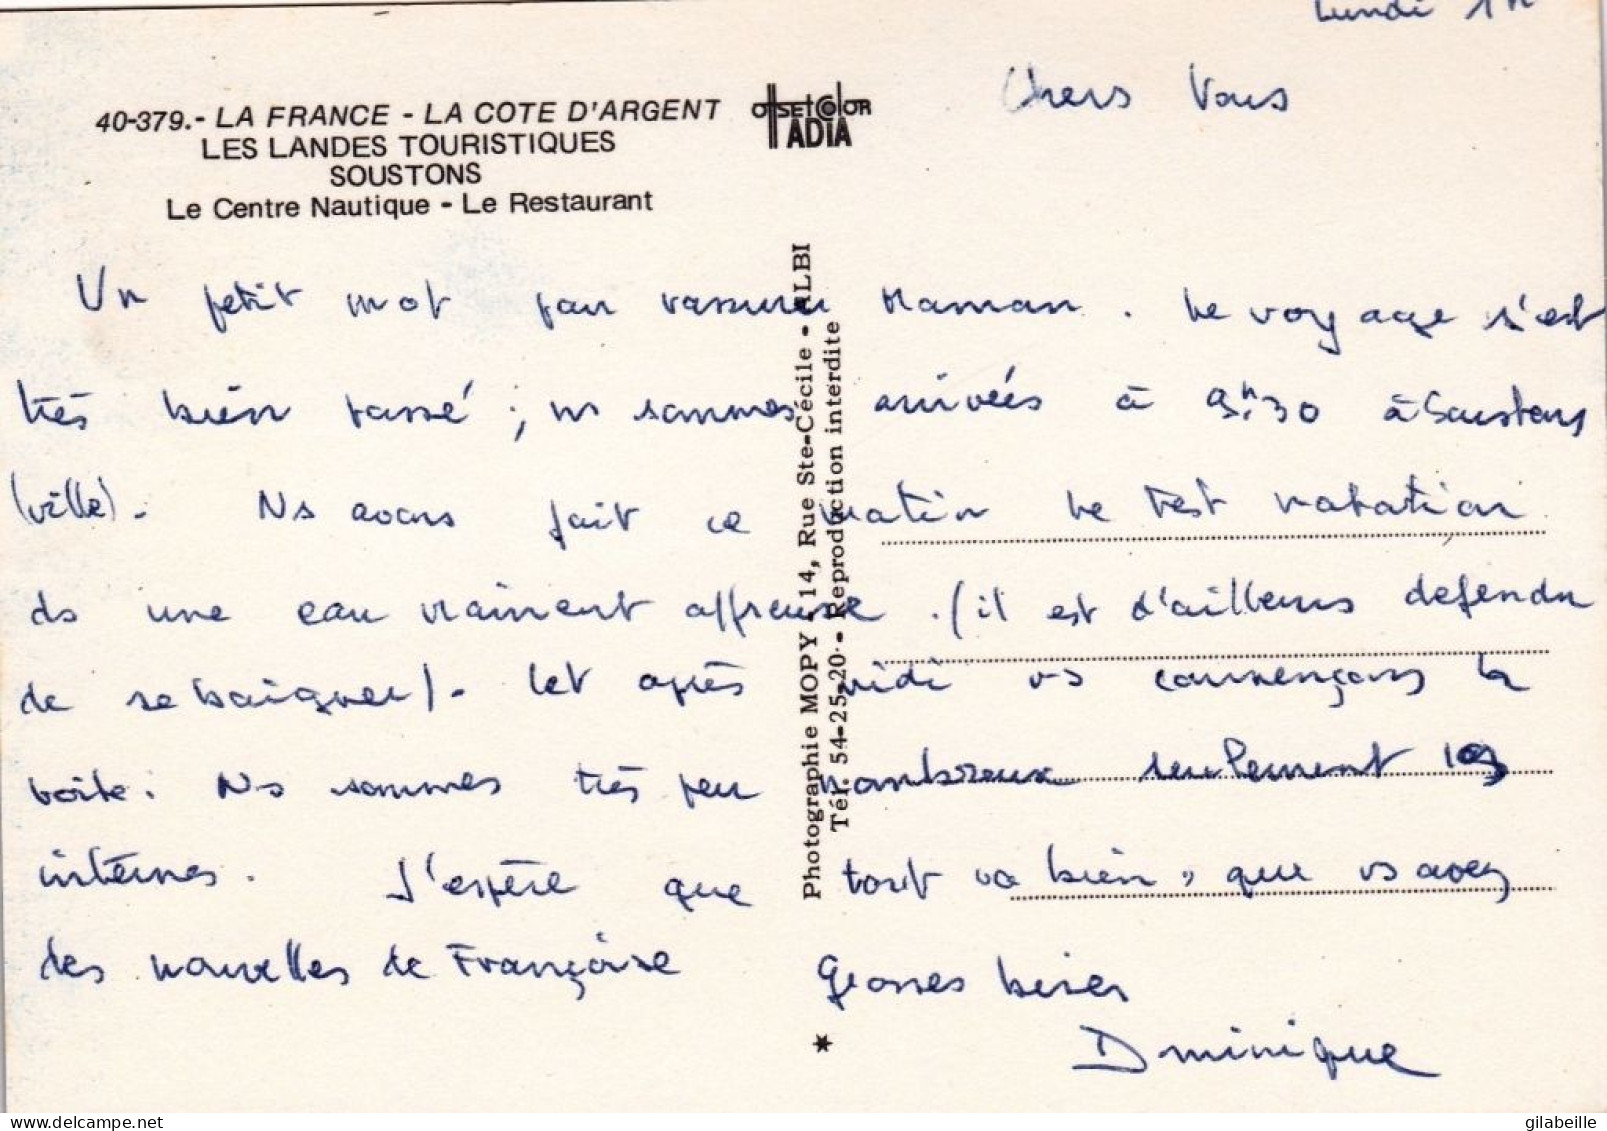 Lundi
40-379.- LA FRANCE - LA COTE D'ARGENT
LES LANDES TOURISTIQUES
SOUSTONS
Le Centre Nautique - Le Restaurant
OffSET COlOR
IADIA
Chers Vous
Un petit mot pour rassurer Maman. Le voyage s'est
très bien passé ; ns sommes arrivées à 9h30 à Soustons
(ville). Ns avons fait ce matin le test natation
ds une eau vraiment affreuse. (il est d'ailleurs défendu
de se baigner). Cet après midi ns commençons la
voile. Ns sommes très peu nombreux seulement 19
internes. J'espère que tout va bien, que vs avez
des nouvelles de Françoise
Grosses bises
Dminique
Photographie MOPY - 14, Rue Ste-Cécile - ALBI
Tél. 54-25-20 - Reproduction interdite
gilabeille